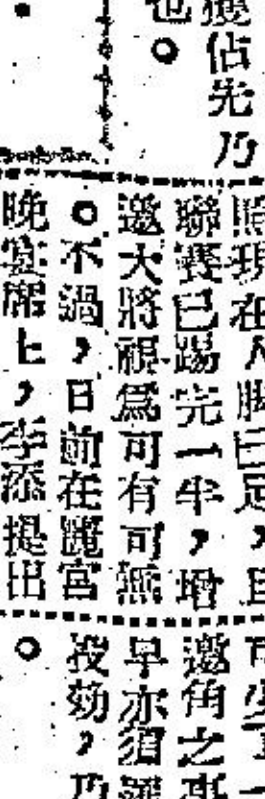 獲佔先乃
也。
照現在人脚已足，且
聯賽已踢完一半，增
邀大將視爲可有可無
。不過，日前在麗宮
晚宴席上，李添提出
邀角之事
早亦須
投効，乃
。